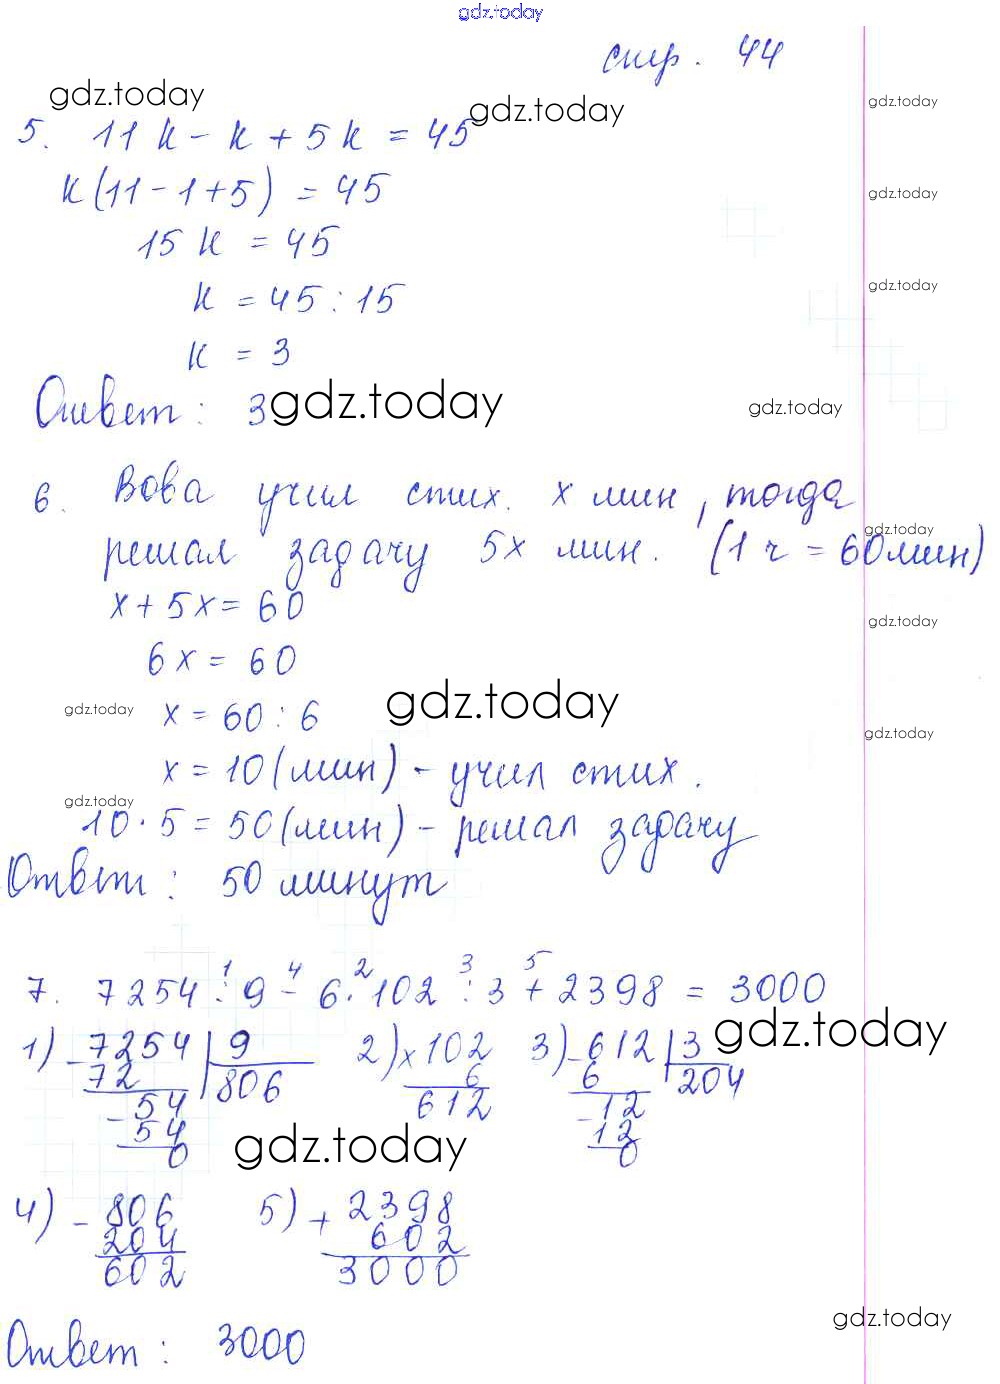 gdz.today
стр. 44
gdz.today
gdz.today
gdz.today
5. 11 k - k + 5 k = 45
k (11 - 1 + 5) = 45
gdz.today
15 k = 45
k = 45 : 15
gdz.today
k = 3
Ответ: 3
gdz.today
gdz.today
6. Вова учил стих. x мин, тогда
gdz.today
решал задачу 5x мин. (1 ч = 60 мин)
x + 5x = 60
gdz.today
6x = 60
gdz.today
gdz.today
x = 60 : 6
gdz.today
x = 10 (мин) - учил стих.
gdz.today
10 · 5 = 50 (мин) - решал задачу
Ответ: 50 минут
1 4 2 3 5
7. 7254 : 9 - 6 · 102 : 3 + 2398 = 3000
gdz.today
1) - 7254 | 9 2) × 102 3) - 612 | 3
72 806 6 6 204
- 54 612 - 12
54 12
0 0
gdz.today
4) - 806 5) + 2398
204 602
602 3000
gdz.today
Ответ: 3000